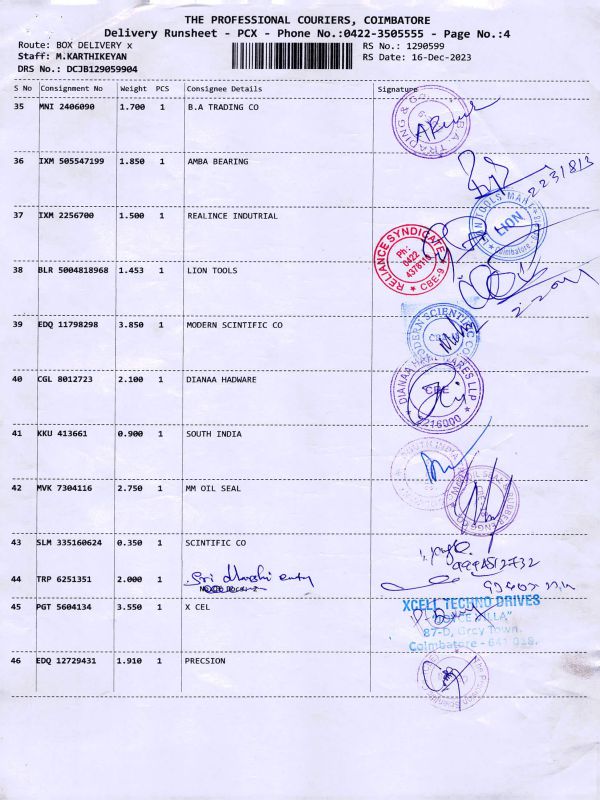 THE PROFESSIONAL COURIERS, COIMBATORE
Delivery Runsheet - PCX - Phone No.:0422-3505555 - Page No.:4
Route: BOX DELIVERY x RS No.: 1290599
Staff: M.KARTHIKEYAN RS Date: 16-Dec-2023
DRS No.: DCJB129059904
S No Consignment No Weight PCS Consignee Details Signature
35 MNI 2406090 1.700 1 B.A TRADING CO
36 IXM 505547199 1.850 1 AMBA BEARING
37 IXM 2256700 1.500 1 REALINCE INDUTRIAL
RELIANCE SYNDICATE
Ph:
0422
CBE-9
LION
Coimbatore
38 BLR 5004818968 1.453 1 LION TOOLS
39 EDQ 11798298 3.850 1 MODERN SCINTIFIC CO
40 CGL 8012723 2.100 1 DIANAA HADWARE
CBE
41 KKU 413661 0.900 1 SOUTH INDIA
42 MVK 7304116 2.750 1 MM OIL SEAL
43 SLM 335160624 0.350 1 SCINTIFIC CO
44 TRP 6251351 2.000 1 Sri
45 PGT 5604134 3.550 1 X CEL
XCELL TECHNO DRIVES
87-D, Grey Town,
Coimbatore - 641 018.
46 EDQ 12729431 1.910 1 PRECSION